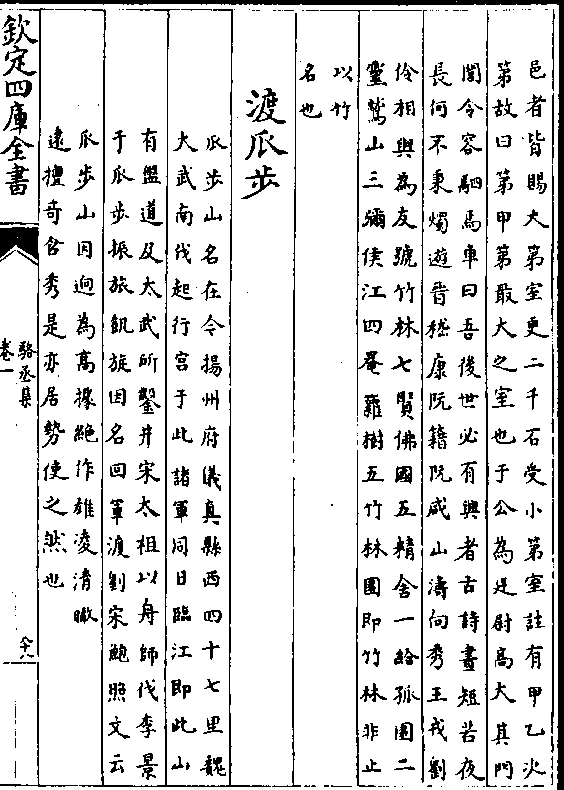 邑者皆賜大第室更二千石受小第室註有甲乙次
第故曰第甲第最大之室也于公為廷尉高大其門
閭令容駟馬車曰吾後世必有興者古詩晝短苦夜
長何不秉燭遊晉嵇康阮籍阮咸山濤向秀王戎劉
伶相與為友號竹林七賢佛國五精舍一給孤園二
靈鷲山三獼侯江四菴羅樹五竹林園即竹林非止
以竹
名也
渡瓜步
瓜步山名在今揚州府儀真縣西四十七里魏
大武南伐起行宫于此諸軍同日臨江即此山
有盤道及太武所鑿井宋太祖以舟師伐李景
于瓜步振旅凱旋因名回軍渡劉宋鮑照文云
瓜步山因迥為高據絶作雄凌清瞰
逺擅奇含秀是亦居勢使之然也
欽定四庫全書
駱丞集
卷一